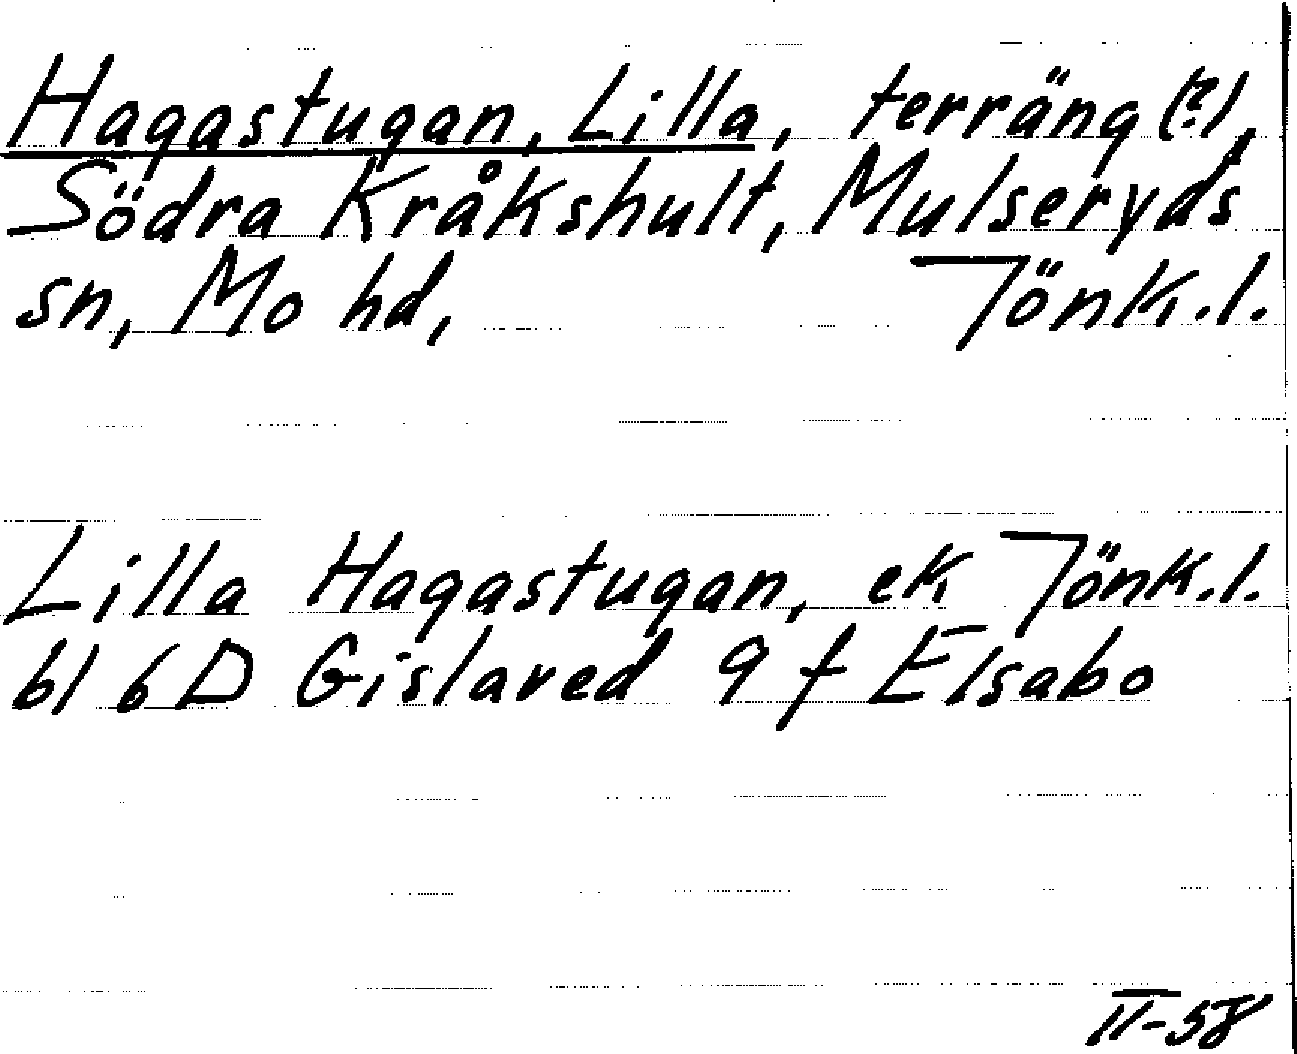 Hagastugan, Lilla, terräng (?),
Södra Kråkshult, Mulseryds
sn, Mo hd, Jönk.l.
Lilla Hagastugan, ek Jönk.l.
bl 6 D Gislaved 9 f Elsabo
II-58